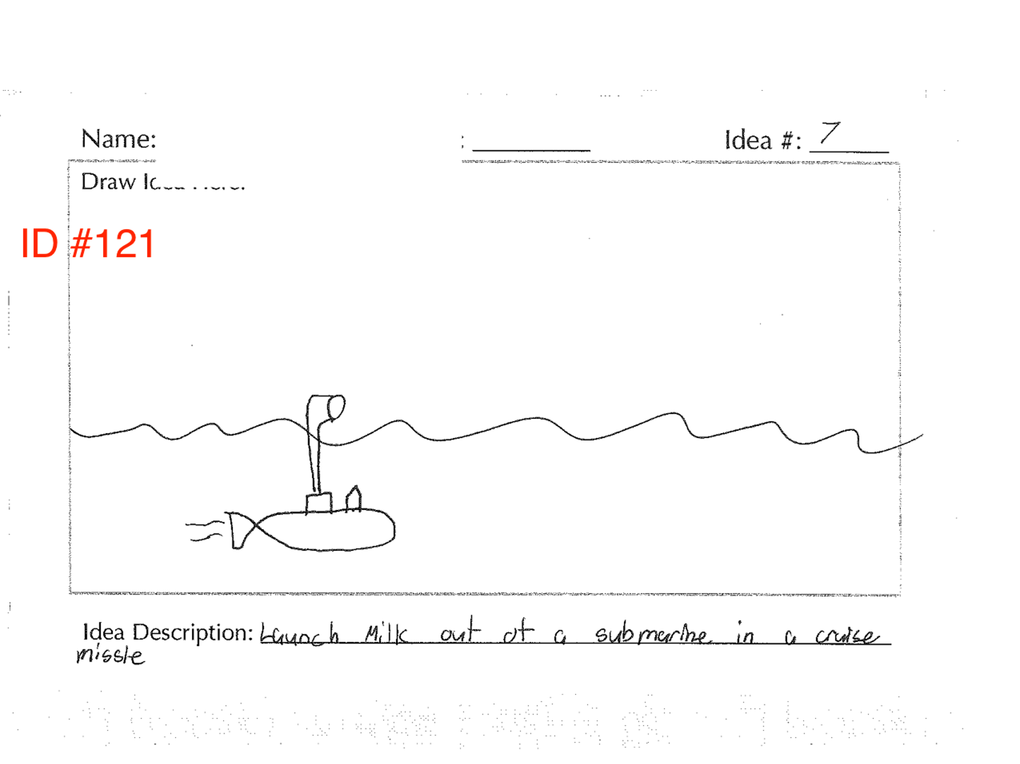 Name: : Idea #: 7
Draw Idea Here:
ID #121
Idea Description: Launch Milk out of a submarine in a cruise
missle